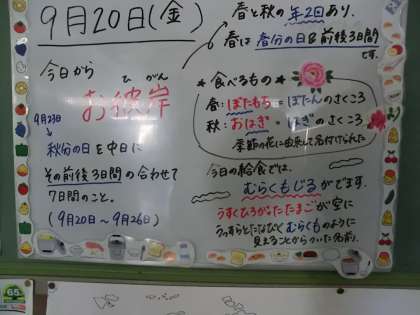 9月20日(金)
今日から
ひがん
お彼岸
9月23日
秋分の日を中日に
その前後3日間の合わせて
7日間のこと。
(9月20日～9月26日)
春と秋の年2回あり、
春は春分の日を前後3日間
です。
＊食べるもの＊
春:ぼたもち=ぼたんのさくころ
秋:おはぎ=はぎのさくころ
季節の花に由来して名付けられた
今日の給食では、
むらくもじるがでます。
うすくひろがったたまごが空に
うっすらとたなびくむらくものように
見えることからついた名前。
65